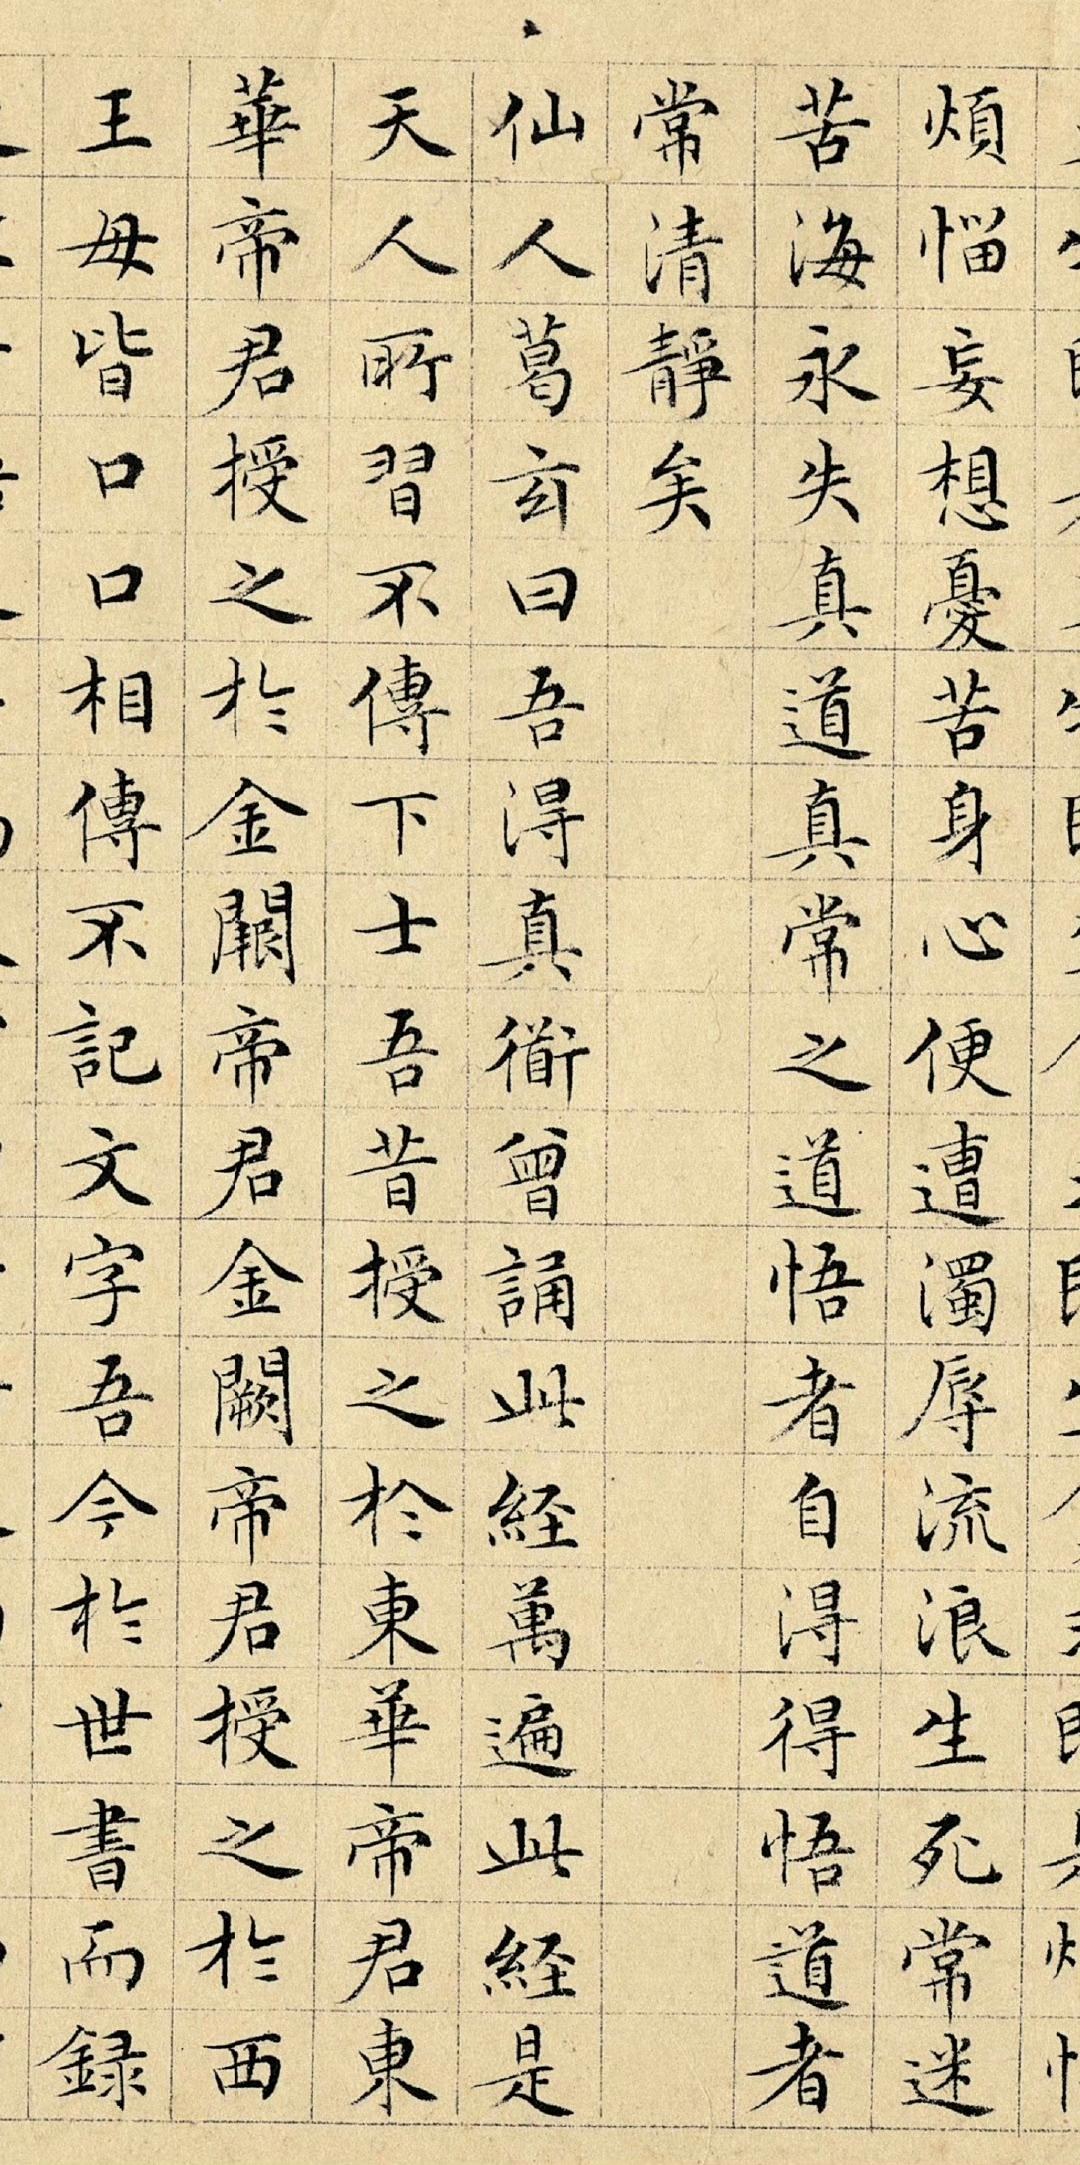 煩惱妄想憂苦身心便遭濁辱流浪生死常迷
苦海永失真道真常之道悟者自得得悟道者
常清靜矣
仙人葛玄曰吾得真衜曾誦此経萬遍此経是
天人所習不傳下士吾昔授之於東華帝君東
華帝君授之於金闕帝君金闕帝君授之於西
王母皆口口相傳不記文字吾今於世書而録